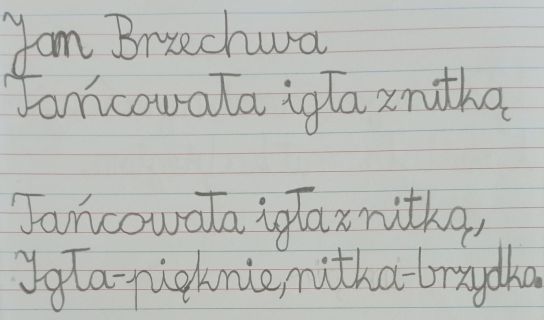 Jan Brzechwa
Tańcowała igła z nitką
Tańcowała igła z nitką,
Igła-pięknie, nitka-brzydko.